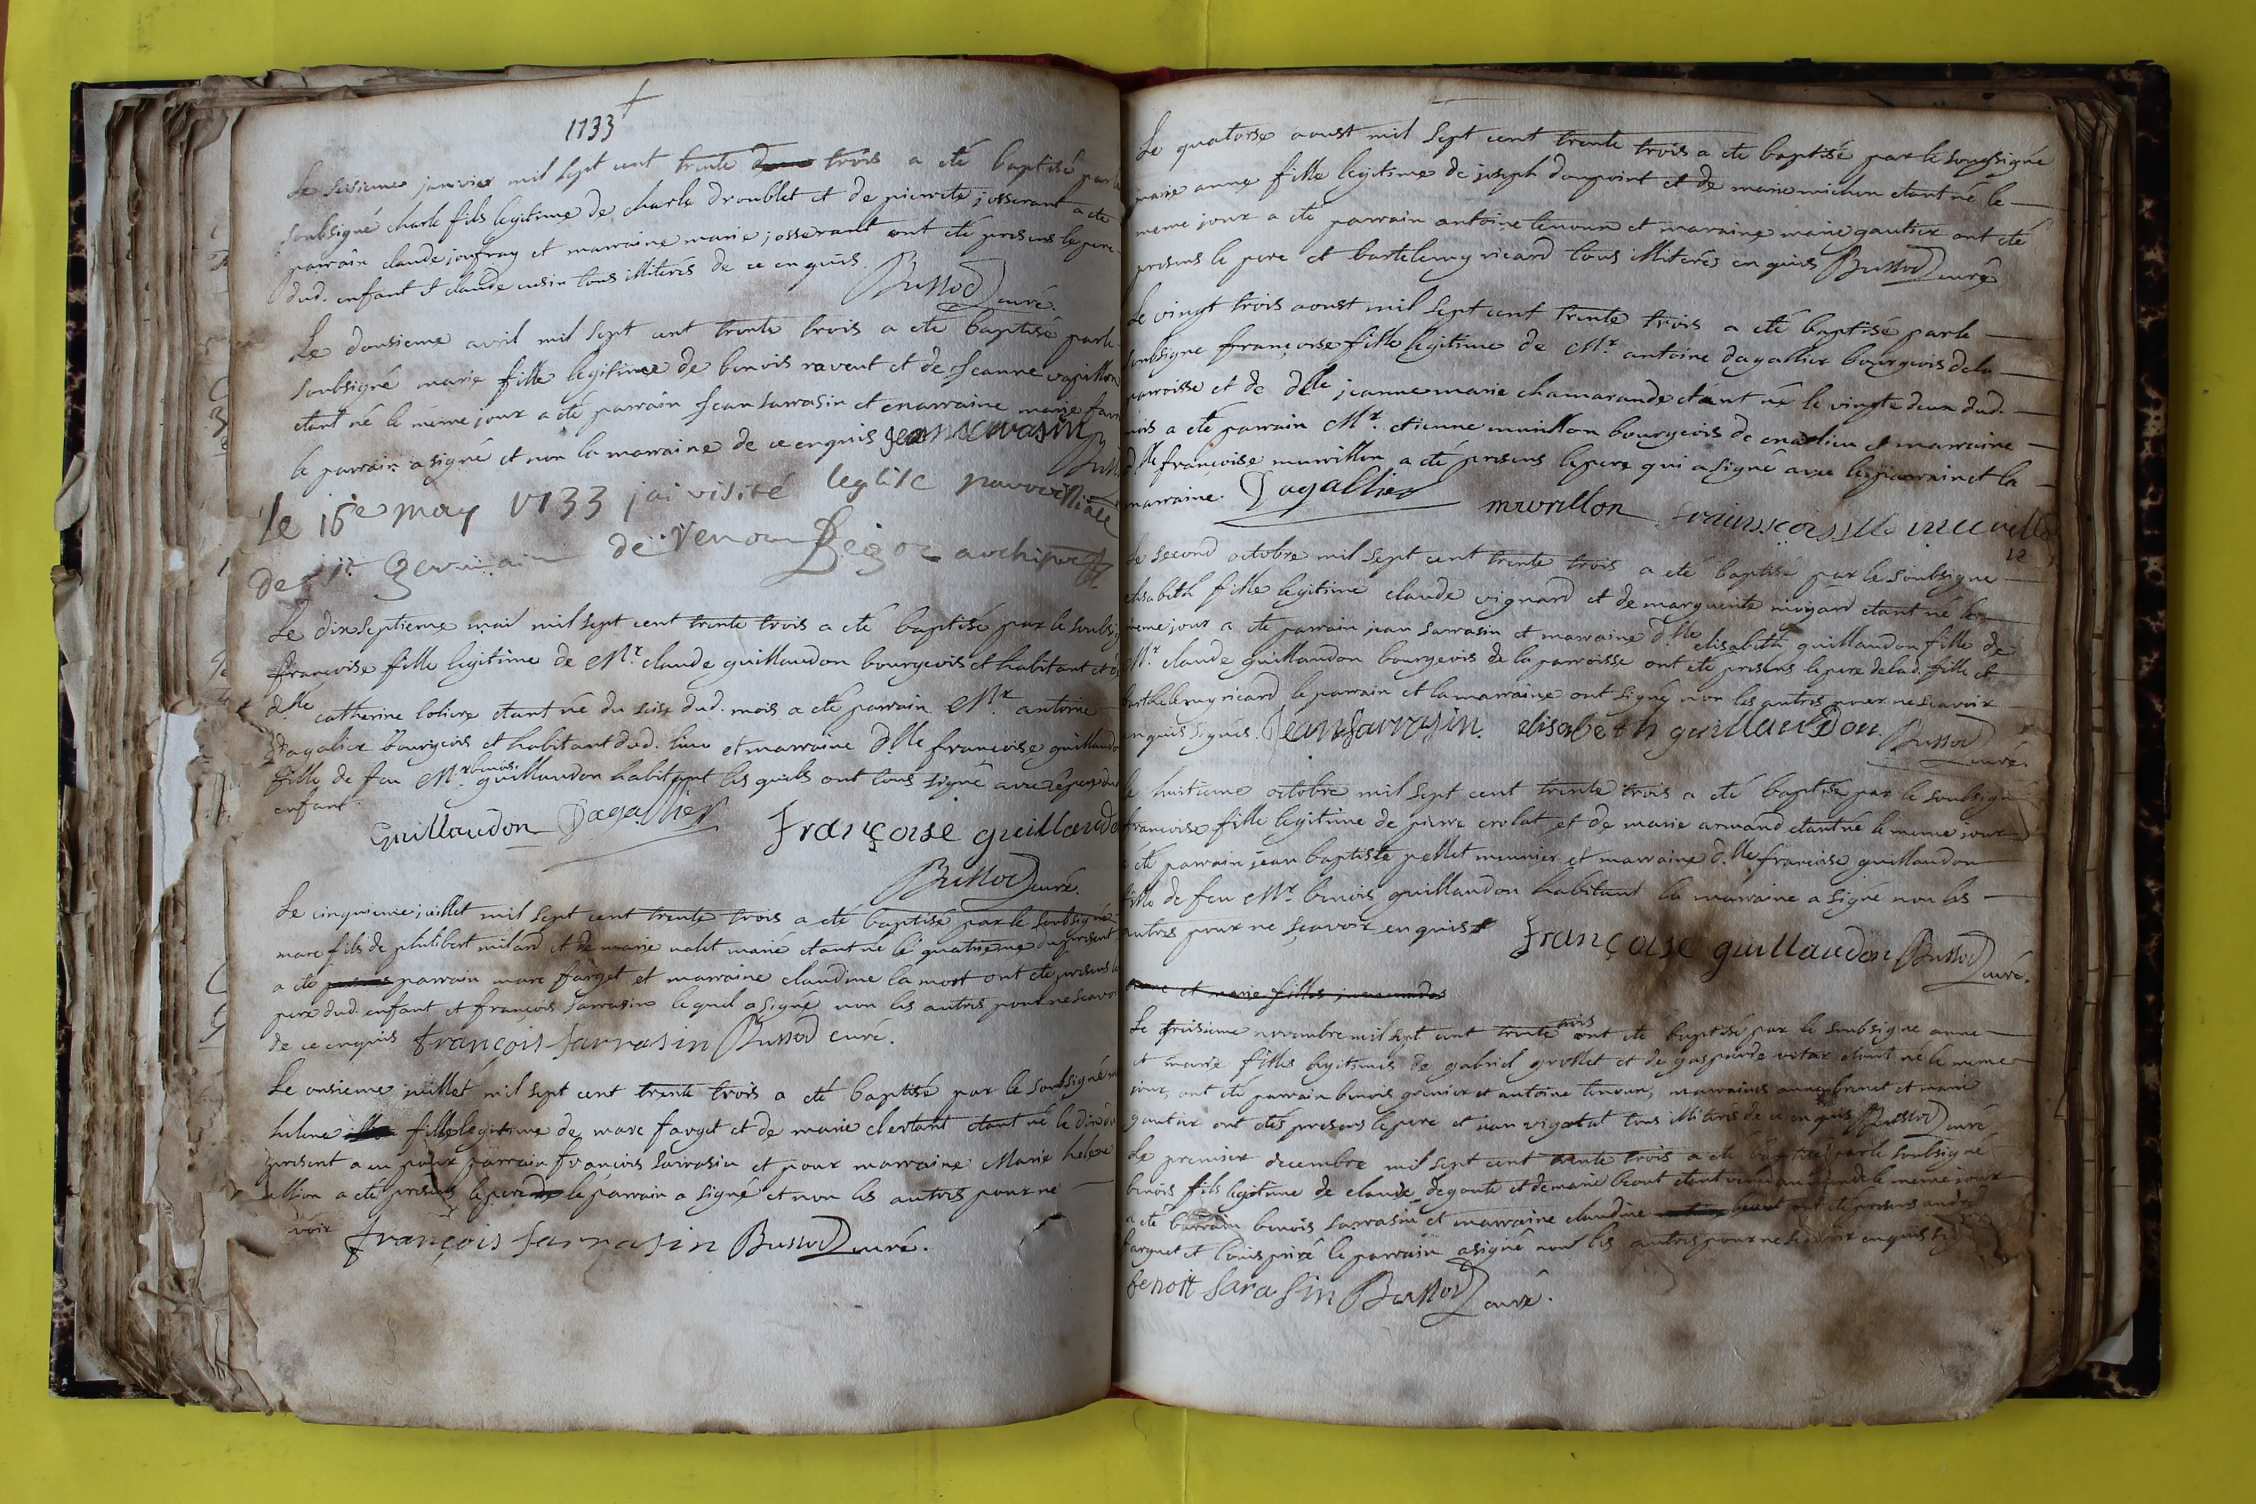 1733
Le sisieme janvier mil sept cent trente trois a eté baptisé par le
soubsigné charle fils legitime de charle droublet et de pierrete josserant a eté
parrain claude joufray et marraine marie josserant ont eté presens le pere
dud. enfant et claude cusin tous illiterés de ce enquis.
Bussod curé.
Le dousieme avril mil sept cent trente trois a eté baptisé par le
soubsigné marie fille legitime de benois ravent et de Jeanne papillon
etant né le meme jour a eté parrain Jean sarrasin et marraine marie
le parrain a signé et non la marraine de ce enquis Jean sarasin
Le 15e may 1733 j'ai visité leglise parroissialle
de st germain de Venou archipretre
Le dix septieme mai mil sept cent trente trois a eté baptisé par le soubsi
francoise fille legitime de Mr. claude guillaudon bourgeois et habitant et d
dlle catherine loliere etant né du seise dud. mois a eté parrain Mr. antoine
dagalier bourgeois et habitant dud. lieu et marraine dlle francoise guillaudo
fille de feu Mr. benois guillaudon habitant les quels ont tous signé avec le pere dud
enfant.
Guillaudon Dagallier françoise guillaudo
Bussod curé.
Le cinquieme juillet mil sept cent trente trois a eté baptisé par le soubsigné
marc fils de philibert milard et de marie valet marié etant né le quatrieme du present
a eté parrain marc farget et marraine claudine la mort ont eté presens le
pere dud. enfant et françois sarrasin lequel a signé non les autres pour ne scavoi
de ce enquis françois sarrasin Bussod curé.
Le onsieme juillet mil sept cent trente trois a eté baptisé par le soubsigné
helene fille legitime de marc farget et de marie clertant etant né le dix du
present a eu pour parrain françois sarrasin et pour marraine Marie helene
a eté presens le pere le parrain a signé et non les autres pour ne
voir françois sarrasin Bussod curé.
Le quatorse aoust mil sept cent trente trois a eté baptisé par le sousigné
marie anne fille legitime de joseph donpoint et de marie michon etant né le
meme jour a eté parrain antoine tenoun et maraine marie gautier ont eté
presens le pere et bartelemy ricard tous illiterés enquis Bussod curé
Le vingt trois aoust mil sept cent trente trois a eté baptisé par le
soubsigné françoise fille legitime de Mr. antoine dagallier bourgeois de la
parroisse et de dlle jeanne marie chamarande etant né le vingte deux dud.
mois a eté parrain Mr. etienne murillon bourgeois de et marraine
dlle françoise muvrillon a eté presens le pere qui a signé avec le parrain et la
marraine. Dagallier muvrillon
Le second octobre mil sept cent trente trois a eté baptisé par le soubsigné
elisabeth fille legitime claude vignard et de marguerite moyard etant né le
meme jour a eté parrain jean sarrasin et marraine dlle elisabeth guillaudon fille de
Mr. claude guillaudon bourgeois de la parroisse ont eté presens le pere de lad. fille et
barthelemy ricard le parrain et la marraine ont signé non les autres pour ne scavoir
enquis signés. Jean sarrasin. elisabeth guillaudon. Bussod
curé.
Le huitieme octobre mil sept cent trente trois a eté baptisé par le soubsigné
francoise fille legitime de pierre crolat et de marie armand etant né le meme jour
a eté parrain jean baptiste pellet meunier et marraine dlle francoise guillaudon
fille de feu Mr. benois guillaudon habitant la marraine a signé non les
autres pour ne sçavoir enquis françoise guillaudon Bussod curé.
et marie filles
Le troisieme novembre mil sept cent trente trois ont eté baptisé par le soubsigné anne
et marie filles legitimes de gabriel grollet et de gasparde etant né le meme
jour, ont eté parrain benois grenier et antoine tenoun, marraines anne brunet et marie
gautier ont eté presens le pere et jean vigotat tous illiterés de ce enquis Bussod curé
Le premier decembre mil sept cent trente trois a eté baptisé par le soubsigné
benois fils legitime de claude degoute et de marie beout etant le meme jour
a eté parrain benois sarrasin et marraine claudine beout ont eté presens andré
farguet et louis privé le parrain a signé non les autres pour ne scavoir enquis
benoit sarasin Bussod curé.